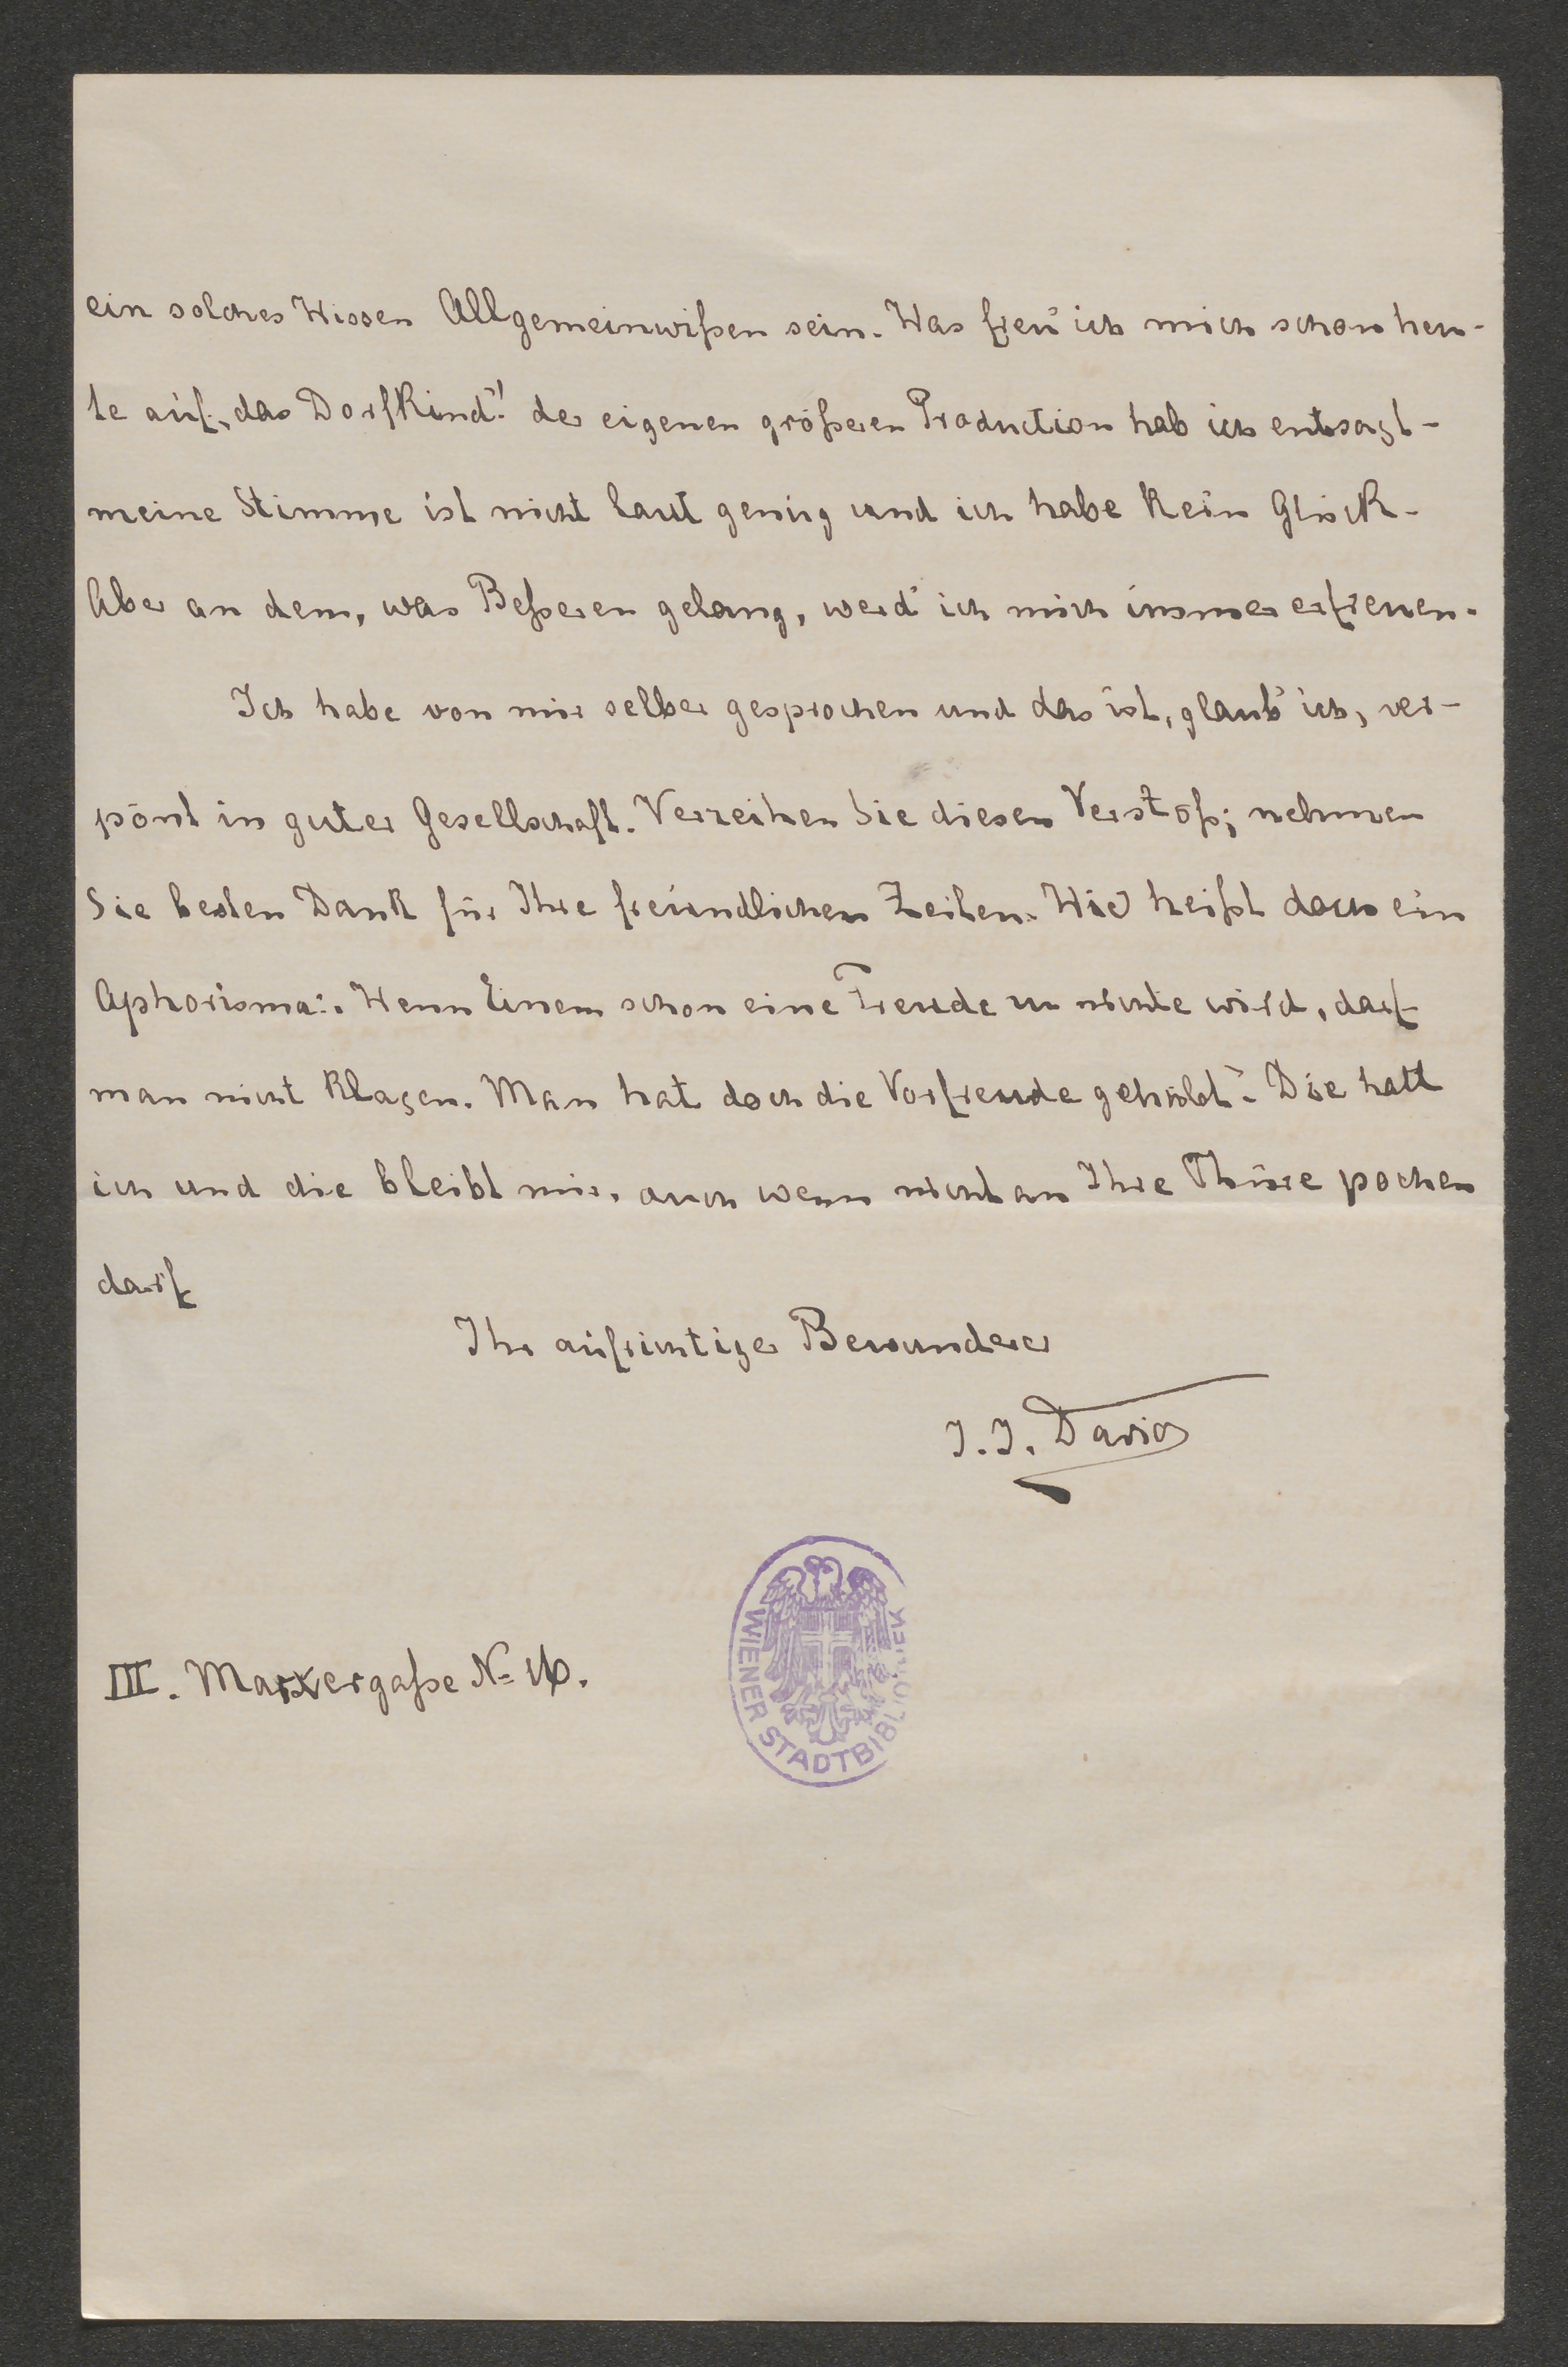 ein solches Wissen Allgemeinwißen sein. Was freu' ich mich schon heu-
te auf „das Dorfkind"! der eigenen größeren Production hab ich entsagt -
meine Stimme ist nicht laut genug und ich habe kein Glück.
Aber an dem, was Beßeren gelang, werd' ich mich immer erfreuen.
Ich habe von mir selber gesprochen und das ist, glaub' ich, ver-
pönt in guter Gesellschaft. Verzeihen Sie diesen Verstoß; nehmen
Sie besten Dank für Ihre freundlichen Zeilen. Wie heißt doch ein
Aphorisma: „Wenn Einem schon eine Freude zu nichte wird, darf
man nicht klagen. Man hat doch die Vorfreude gehabt". Die hatt
ich und die bleibt mir, auch wenn nicht an Ihre Thüre pochen
darf
Ihr aufrichtiger Bewunderer
J. J. David
III. Marxergaße No 16.
WIENER STADTBIBLIOTHEK